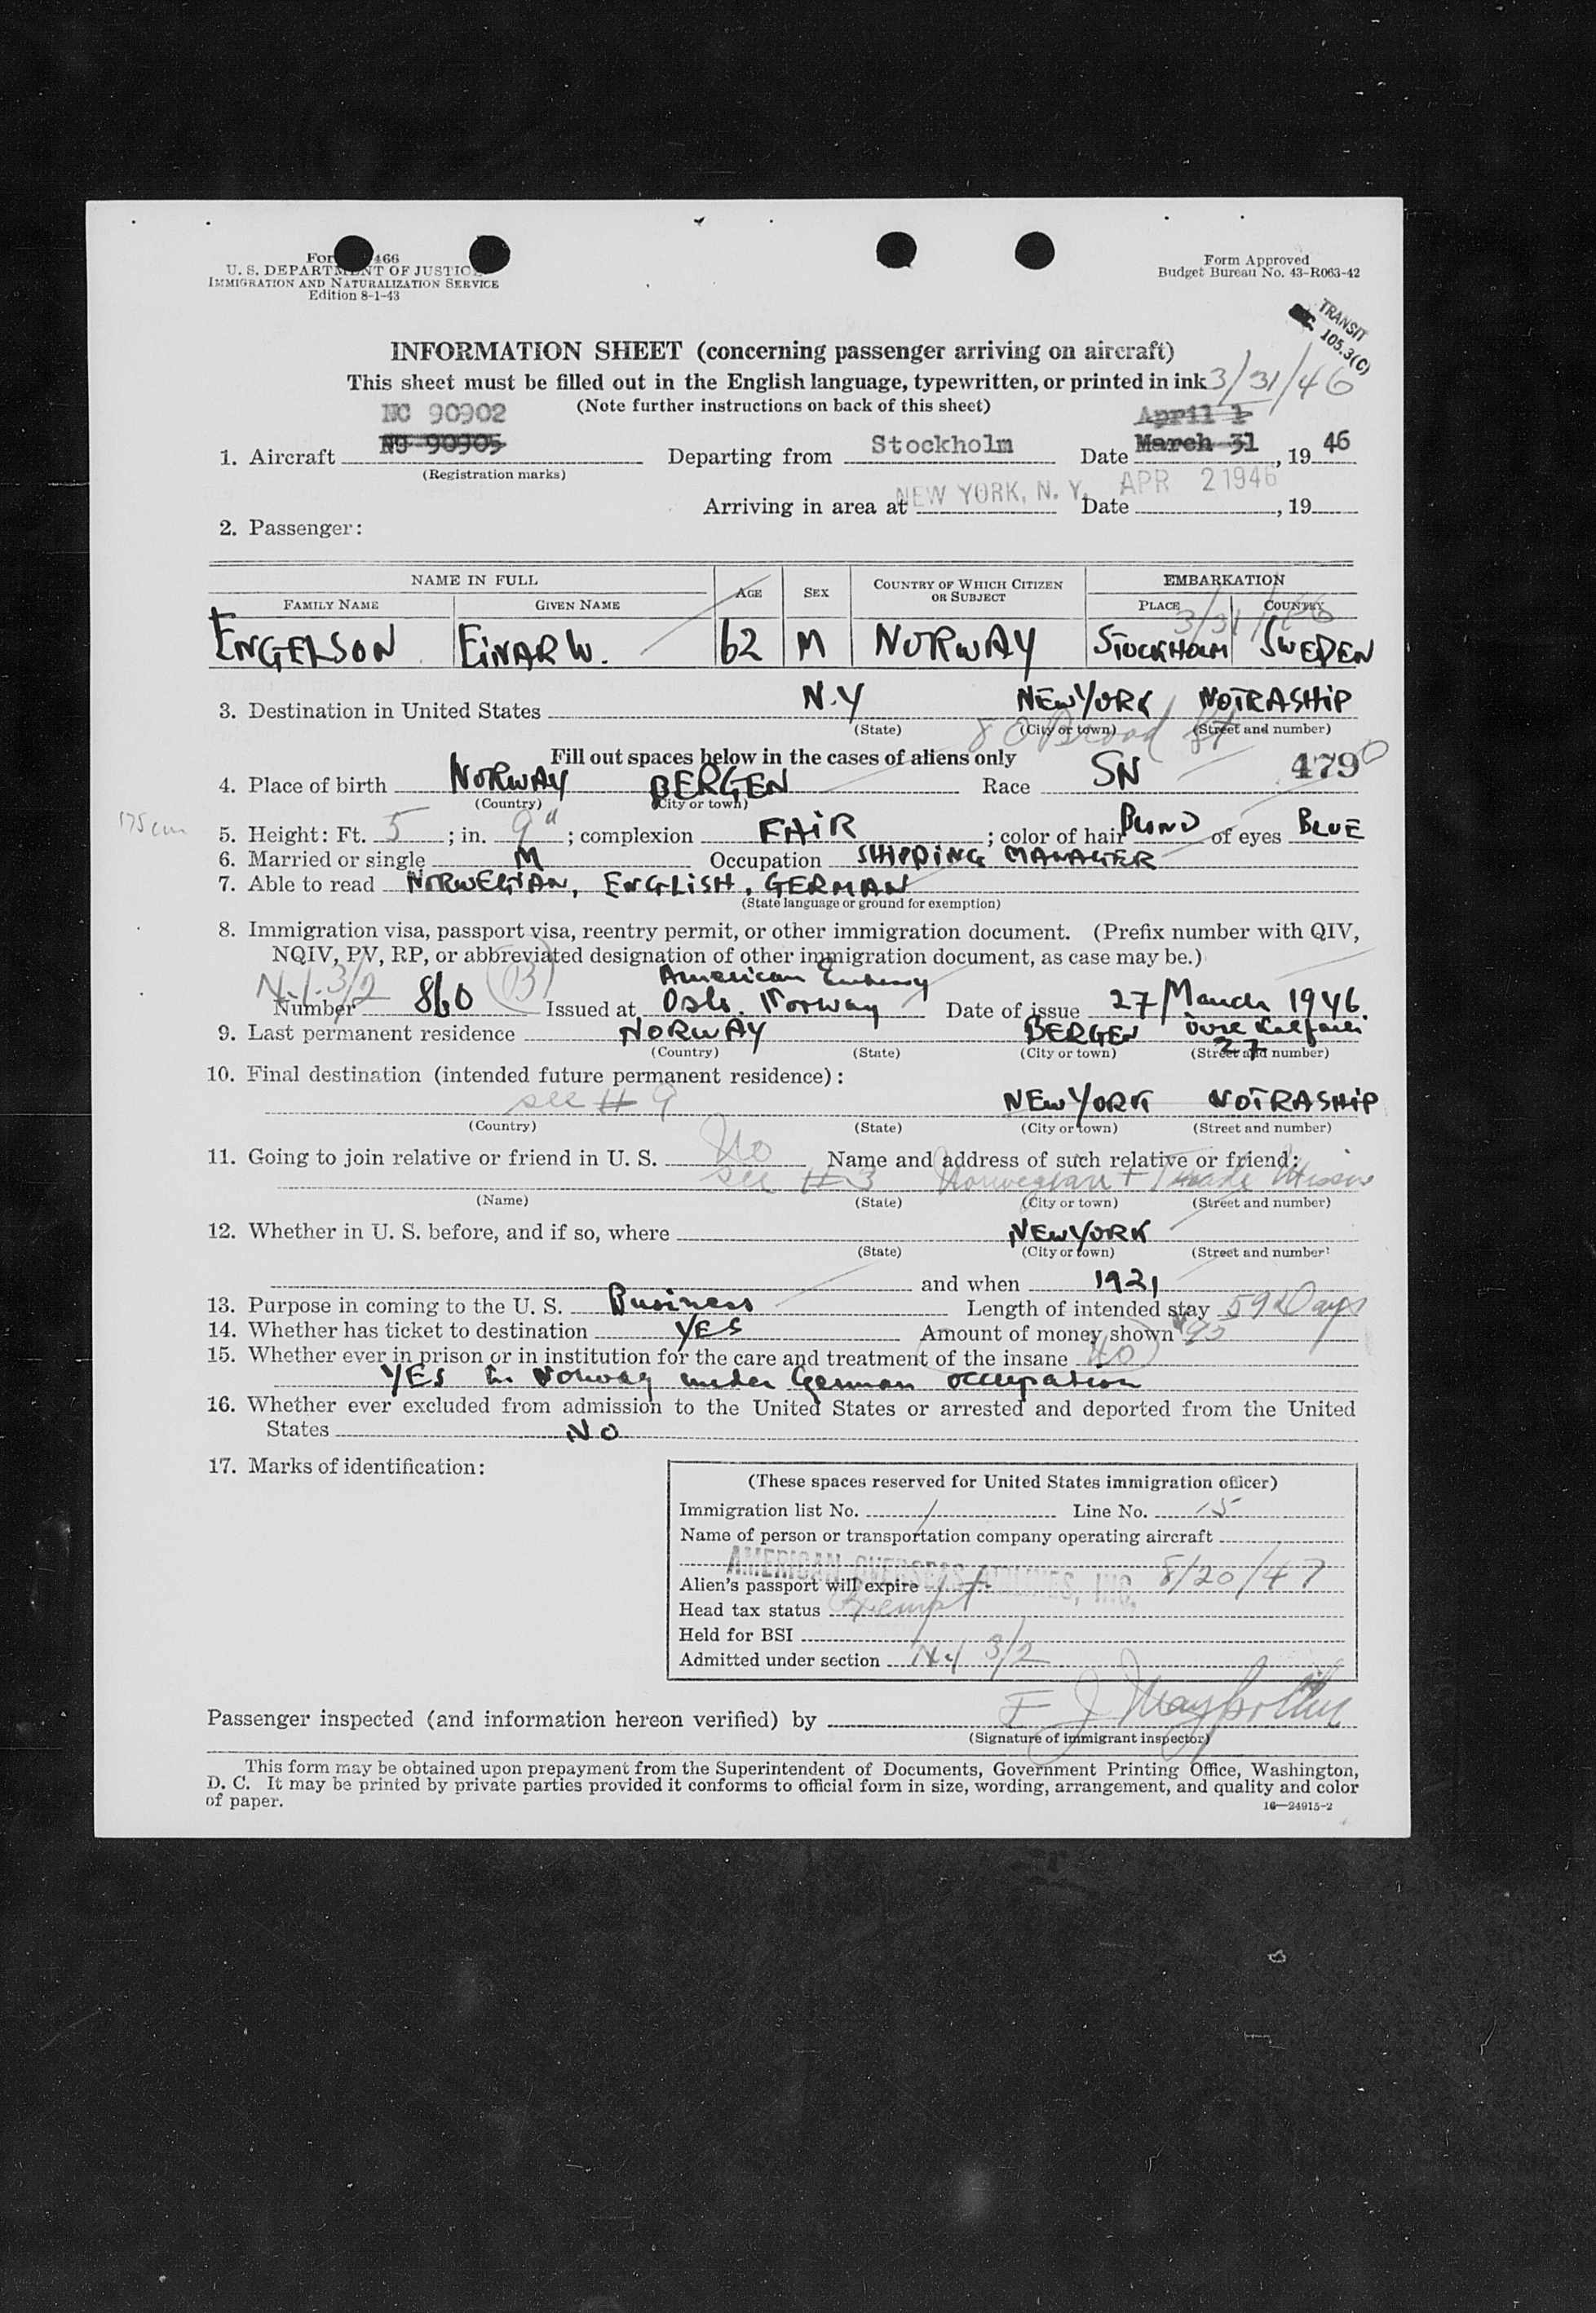 Form 466
U. S. DEPARTMENT OF JUSTICE
IMMIGRATION AND NATURALIZATION SERVICE
Edition 8-1-43
Form Approved
Budget Bureau No. 43-R063-42
TRANSIT
105.3(C)
INFORMATION SHEET (concerning passenger arriving on aircraft)
This sheet must be filled out in the English language, typewritten, or printed in ink 3/31/46
(Note further instructions on back of this sheet)
NC 90902
April 1
1. Aircraft NC 90905 Departing from Stockholm Date March 31, 19 46
(Registration marks)
Arriving in area at NEW YORK, N. Y. Date APR 2 1946, 19
2. Passenger:
NAME IN FULL AGE SEX COUNTRY OF WHICH CITIZEN OR SUBJECT EMBARKATION
FAMILY NAME GIVEN NAME PLACE COUNTRY
3/31/46
ENGELSON EINAR W. 62 M NORWAY STOCKHOLM SWEDEN
3. Destination in United States N.Y NEW YORK NOTRASHIP
(State) (City or town) (Street and number)
80 Broad St
Fill out spaces below in the cases of aliens only
4790
4. Place of birth NORWAY BERGEN Race SN
(Country) (City or town)
175 cm
5. Height: Ft. 5; in. 9"; complexion FAIR; color of hair BLOND of eyes BLUE
6. Married or single M Occupation SHIPPING MANAGER
7. Able to read NORWEGIAN, ENGLISH, GERMAN
(State language or ground for exemption)
8. Immigration visa, passport visa, reentry permit, or other immigration document. (Prefix number with QIV,
NQIV, PV, RP, or abbreviated designation of other immigration document, as case may be.)
N.I. 3/2 (B) American Embassy
Number 860 Issued at Oslo. Norway Date of issue 27 March 1946.
9. Last permanent residence NORWAY BERGEN 27
(Country) (State) (City or town) (Street and number)
10. Final destination (intended future permanent residence):
see # 9 NEW YORK NOTRASHIP
(Country) (State) (City or town) (Street and number)
11. Going to join relative or friend in U. S. No Name and address of such relative or friend:
see # 3 Norwegian + Trade Mission
(Name) (State) (City or town) (Street and number)
12. Whether in U. S. before, and if so, where NEW YORK
(State) (City or town) (Street and number)
and when 1921
13. Purpose in coming to the U. S. Business Length of intended stay 59 Days
14. Whether has ticket to destination YES Amount of money shown 95
15. Whether ever in prison or in institution for the care and treatment of the insane No
YES in Norway under German occupation
16. Whether ever excluded from admission to the United States or arrested and deported from the United
States NO
17. Marks of identification:
(These spaces reserved for United States immigration officer)
Immigration list No. 1 Line No. 15
Name of person or transportation company operating aircraft
AMERICAN OVERSEAS AIRLINES, INC.
Alien's passport will expire 8/20/47
Head tax status Exempt
Held for BSI
Admitted under section N.I 3/2
Passenger inspected (and information hereon verified) by
(Signature of immigrant inspector)
This form may be obtained upon prepayment from the Superintendent of Documents, Government Printing Office, Washington,
D. C. It may be printed by private parties provided it conforms to official form in size, wording, arrangement, and quality and color
of paper.
16—24915-2